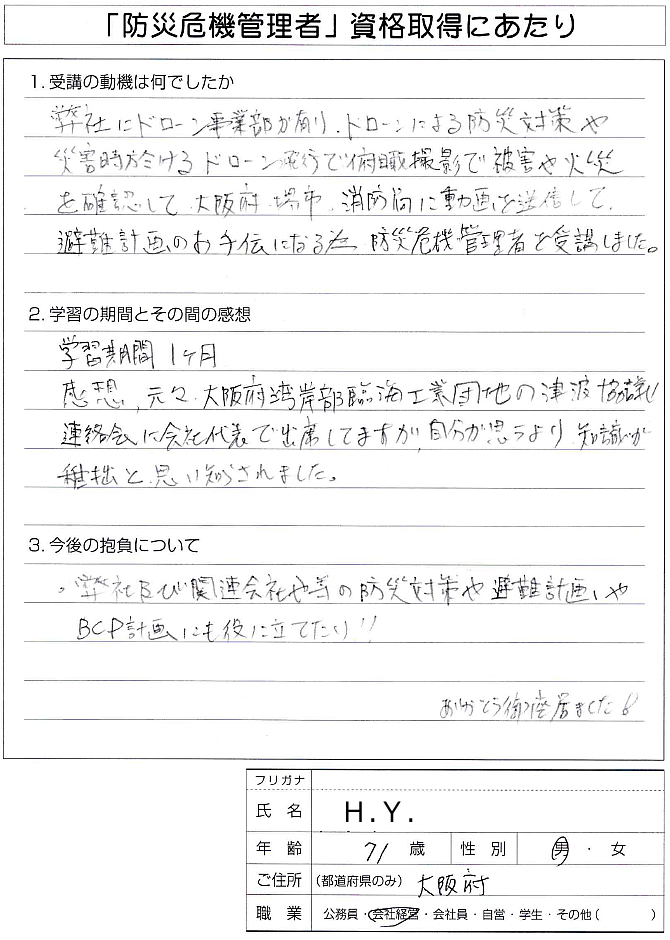 「防災危機管理者」資格取得にあたり
1. 受講の動機は何でしたか
弊社にドローン事業部が有り、ドローンによる防災対策や
災害時於けるドローン飛行で俯瞰撮影で被害や火災
を確認して、大阪府・堺市・消防局に動画を送信して、
避難計画のお手伝になる為 防災危機管理者を受講しました。
2. 学習の期間とその間の感想
学習期間 1ヶ月
感想、元々、大阪府湾岸部臨海工業団地の津波協議
連絡会に会社代表で出席してますが、自分が思うより知識が
稚拙と思い知らされました。
3. 今後の抱負について
・弊社及び関連会社や等の防災対策や避難計画、や
BCP計画にも役に立てたり!!
ありがとう御座居ました
フリガナ
氏名 H.Y.
年齢 71 歳 性別 男・女
ご住所 (都道府県のみ) 大阪府
職業 公務員・会社経営・会社員・自営・学生・その他( )